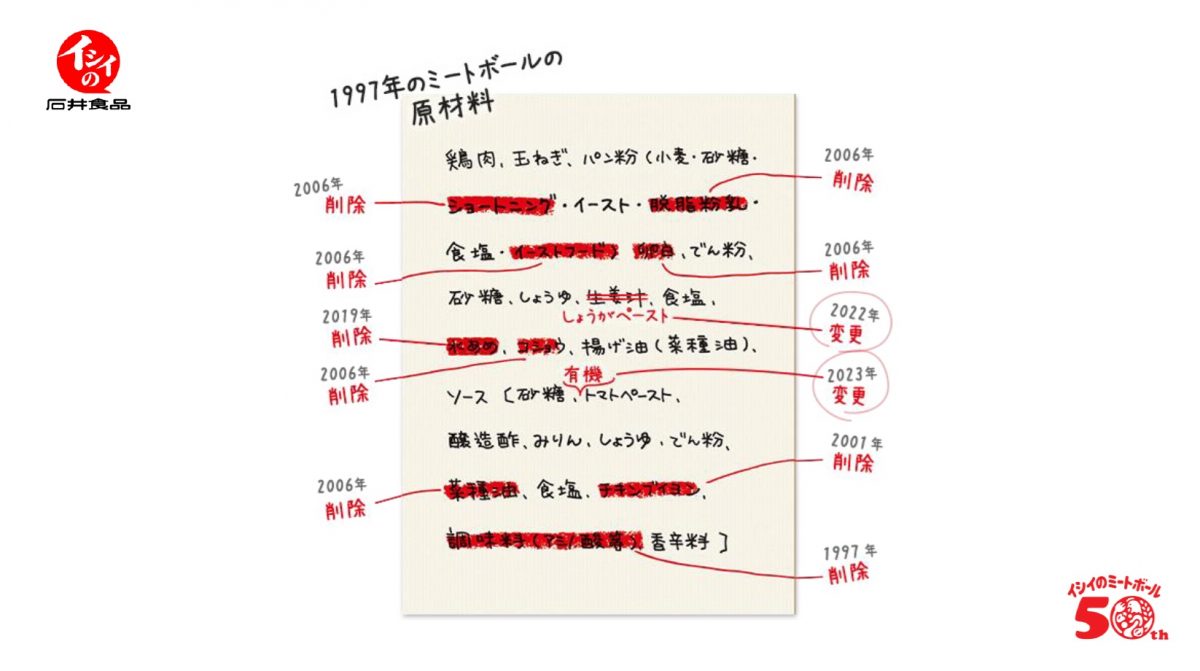 イシイの
石井食品
1997年のミートボールの
原材料
鶏肉、玉ねぎ、パン粉(小麦・砂糖・
2006年
削除
2006年
削除
ショートニング・イースト・脱脂粉乳・
食塩・イーストフード) 卵白、でん粉、
2006年
削除
2006年
削除
砂糖、しょうゆ、生姜汁、食塩、
しょうがペースト
2022年
変更
2019年
削除
水あめ、コショウ、揚げ油(菜種油)、
2006年
削除
有機
2023年
変更
ソース〔砂糖、トマトペースト、
醸造酢、みりん、しょうゆ、でん粉、
2001年
削除
2006年
削除
菜種油、食塩、チキンブイヨン、
調味料(アミノ酸等)、香辛料〕
1997年
削除
イシイのミートボール
50th